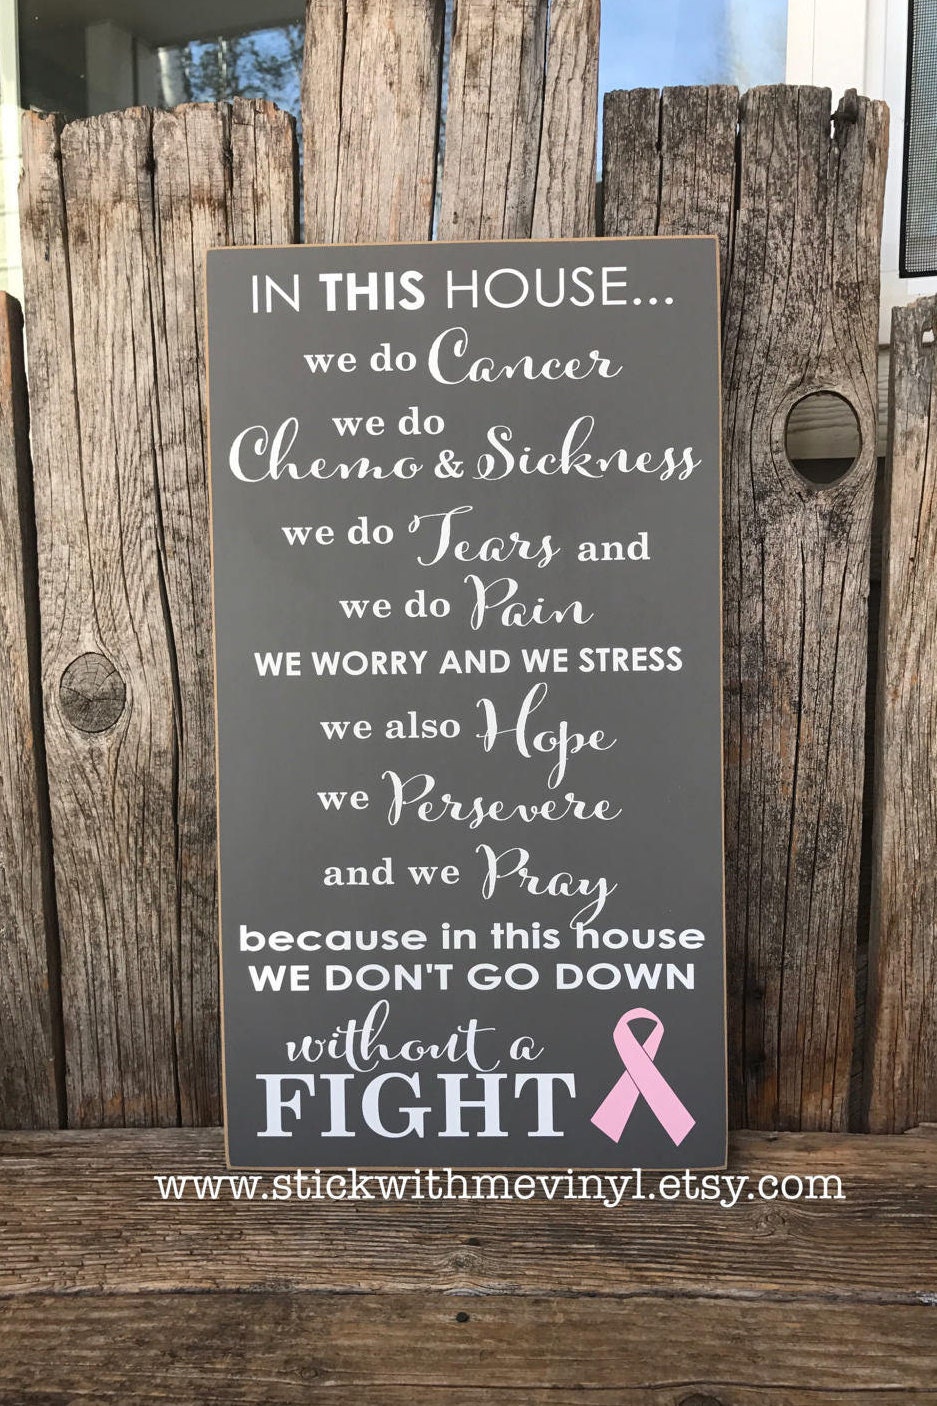 IN THIS HOUSE...
we do Cancer
we do
Chemo & Sickness
we do Tears and
we do Pain
WE WORRY AND WE STRESS
we also Hope
we Persevere
and we Pray
because in this house
WE DON'T GO DOWN
without a
FIGHT
www.stickwithmevinyl.etsy.com